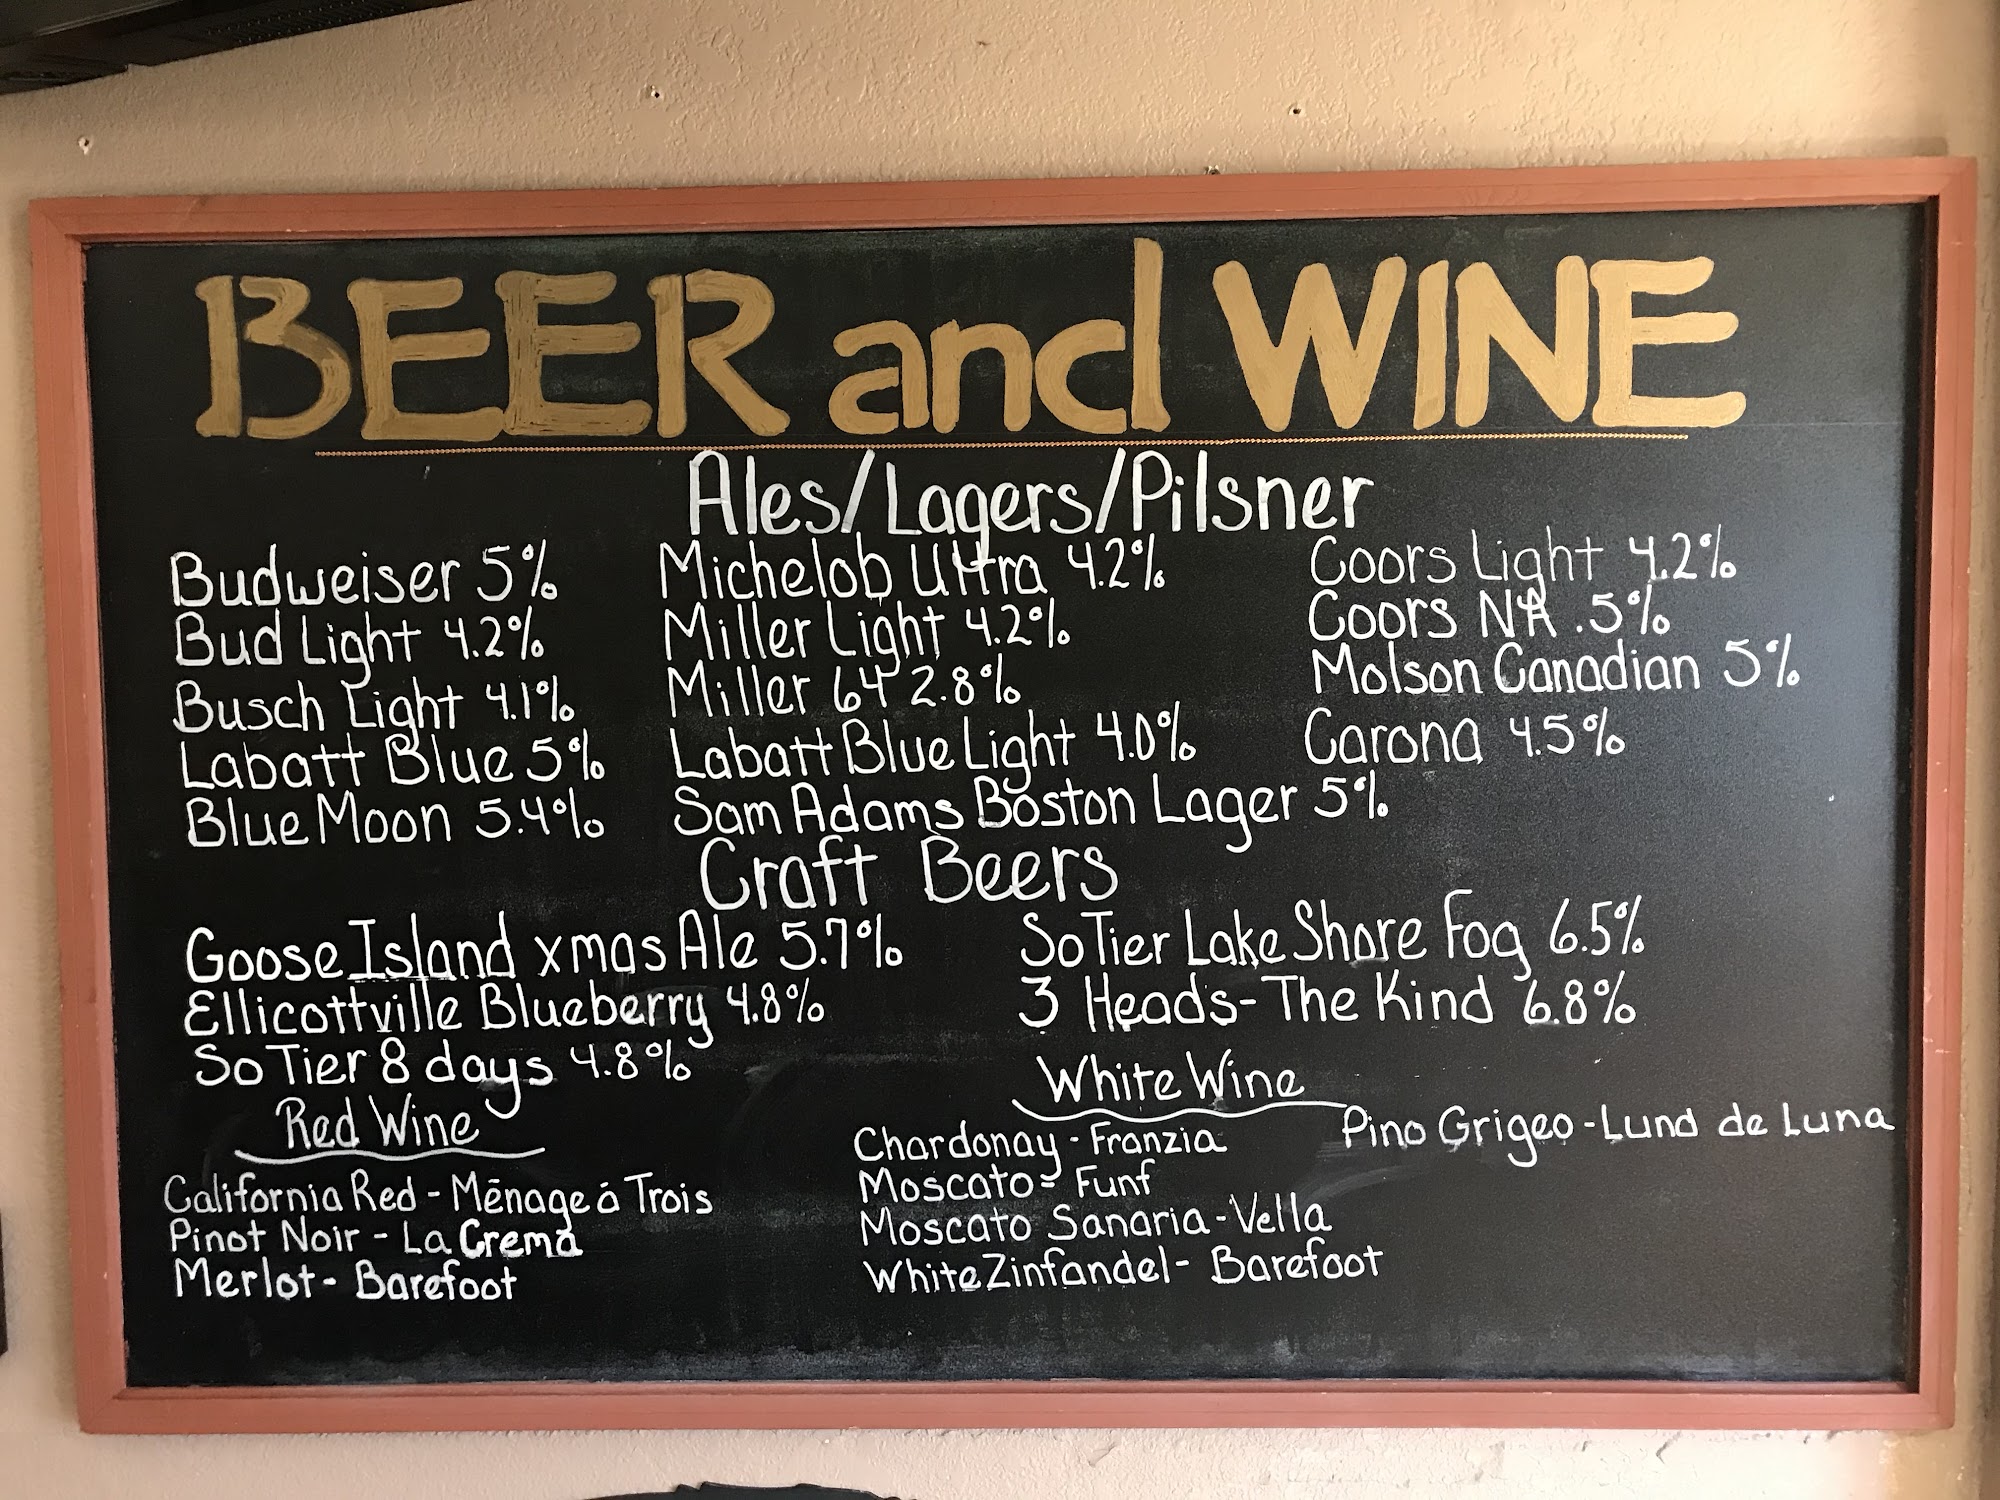 BEER and WINE
Ales/Lagers/Pilsner
Budweiser 5%
Bud Light 4.2%
Busch Light 4.1%
Labatt Blue 5%
Blue Moon 5.4%
Michelob Ultra 4.2%
Miller Light 4.2%
Miller 64 2.8%
Labatt Blue Light 4.0%
Sam Adams Boston Lager 5%
Coors Light 4.2%
Coors NA .5%
Molson Canadian 5%
Carona 4.5%
Craft Beers
Goose Island xmas Ale 5.7%
Ellicottville Blueberry 4.8%
So Tier 8 days 4.8%
So Tier Lake Shore Fog 6.5%
3 Heads-The Kind 6.8%
Red Wine
California Red - Mēnage á Trois
Pinot Noir - La Crema
Merlot- Barefoot
White Wine
Chardonay - Franzia
Moscato - Funf
Moscato Sanaria - Vella
White Zinfandel - Barefoot
Pino Grigeo - Luna de Luna